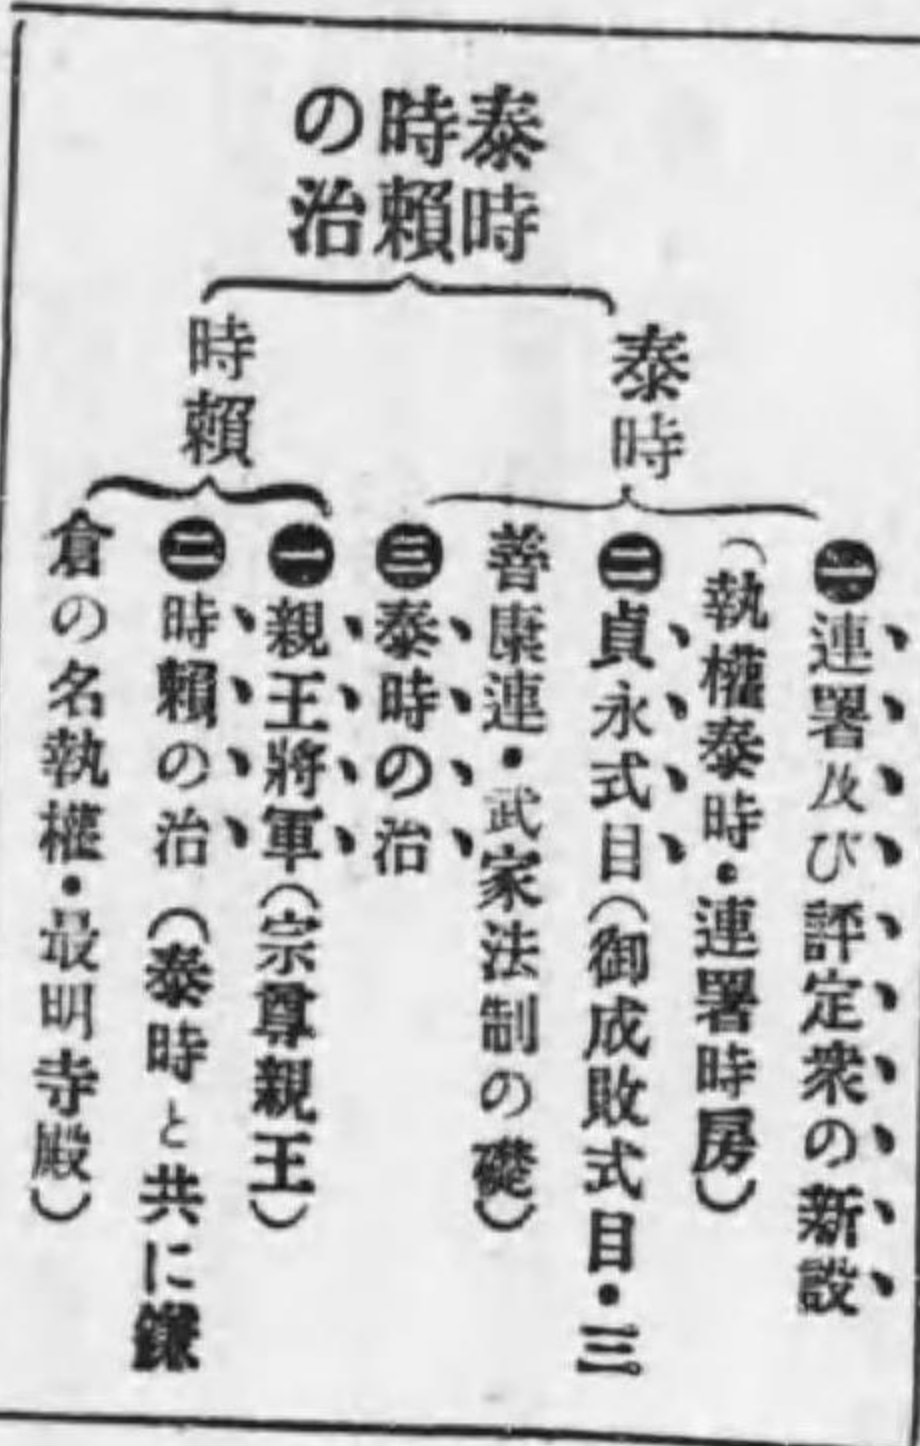 泰時
時賴
の治
泰時
㊀連署及び評定衆の新設
(執權泰時・連署時房)
㊁貞永式目(御成敗式目・三
善康連・武家法制の礎)
㊂泰時の治
時賴
㊀親王將軍(宗尊親王)
㊁時賴の治(泰時と共に鎌
倉の名執權・最明寺殿)